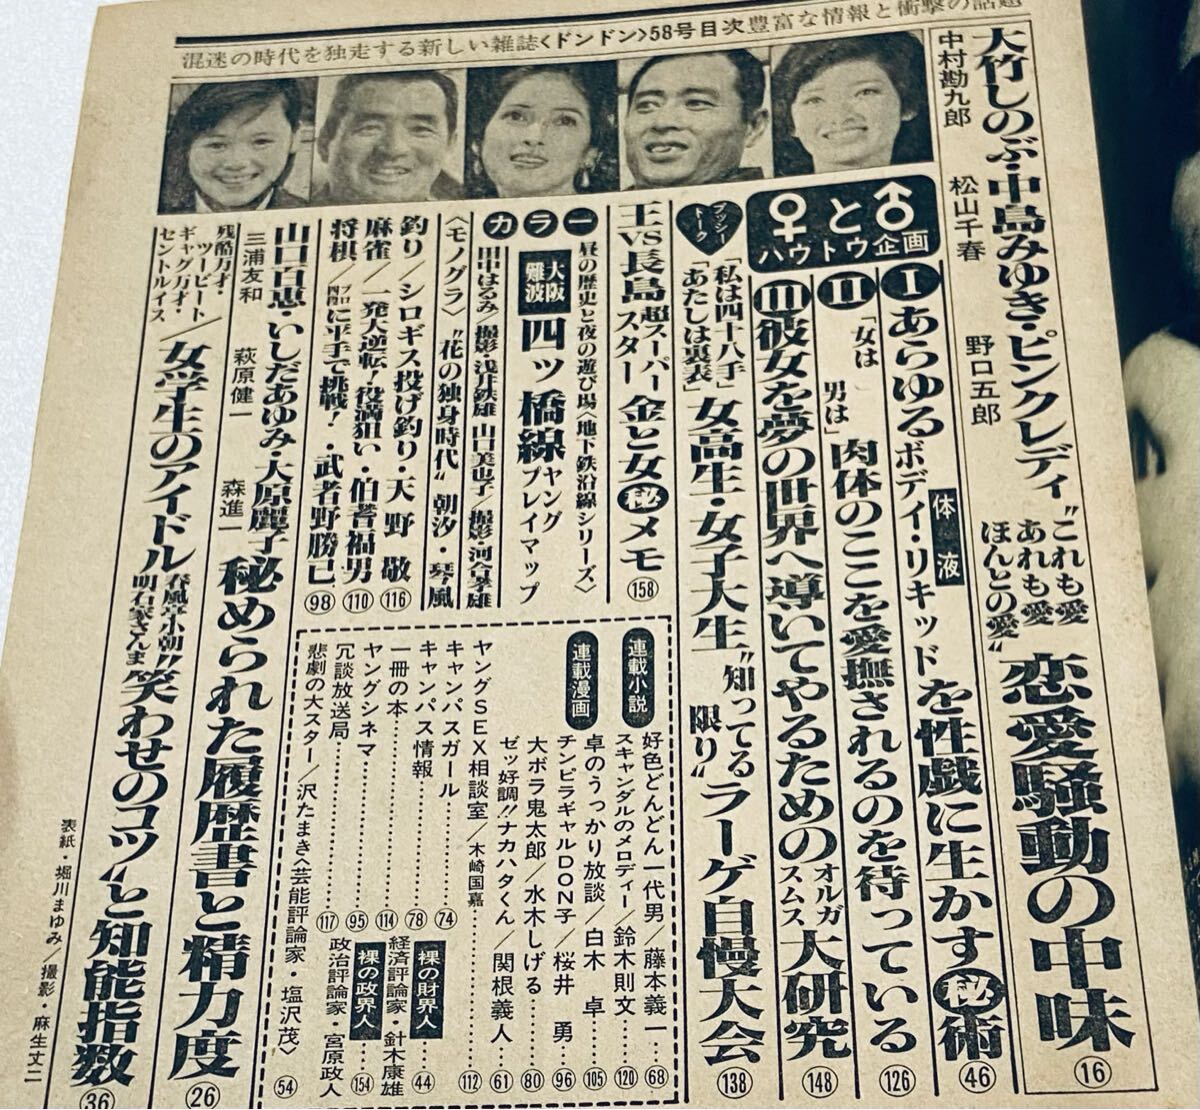 混迷の時代を独走する新しい雑誌<ドンドン>58号目次豊富な情報と衝撃の話題
大竹しのぶ・中島みゆき・ピンクレディ
中村勘九郎 松山千春 野口五郎
"これも愛
あれも愛
ほんとの愛"
恋愛騒動の中味 16
♂と♀
ハウトウ企画
Ⅰ あらゆるボディ・リキッドを性戯に生かす㊙術 46
体液
Ⅱ 「女は
男は」
肉体のここを愛撫されるのを待っている 126
Ⅲ 彼女を夢の世界へ導いてやるためのオルガスムス大研究 148
プッシー
トーク
「私は四十八手」
「あたしは裏表」
女高生・女子大生"知ってる限り"ラーゲ自慢大会 138
王VS長島 超スーパースター 金と女㊙メモ 158
カラー
昼の歴史と夜の遊び場<地下鉄沿線シリーズ>
大阪難波 四ッ橋線 ヤングプレイマップ
田中はるみ/撮影・浅井鉄雄 山口美也子/撮影・河合孝雄
<モノグラ>"花の独身時代" 朝汐・琴風
釣り/シロギス投げ釣り・天野 敬 116
麻雀/一発大逆転!役満狙い・伯耆福男 110
将棋/プロ四段に平手で挑戦!・武者野勝巳 98
山口百恵・いしだあゆみ・大原麗子
三浦友和 萩原健一 森進一
秘められた履歴書と精力度 26
残酷万才・ツービート
ギャグ万才・セントルイス
/女学生のアイドル
春風亭小朝
明石家さんま
"笑わせのコツ"と知能指数 36
連載小説
好色どんどん一代男/藤本義一 68
スキャンダルのメロディー/鈴木則文 120
卓のうっかり放談/白木 卓 105
連載漫画
チンピラギャルDON子/桜井 勇 96
大ボラ鬼太郎/水木しげる 80
ゼッ好調!!ナカハタくん/関根義人 61
ヤングSEX相談室/木崎国嘉 112
キャンパスガール 74
キャンパス情報 78
一冊の本 114
ヤングシネマ 95
冗談放送局 117
裸の財界人
経済評論家・針木康雄 44
裸の政界人
政治評論家・宮原政人 154
悲劇の大スター/沢たまき<芸能評論家・塩沢茂> 54
表紙・堀川まゆみ/撮影・麻生丈二